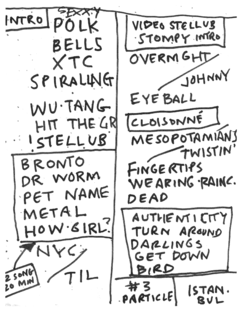 INTRO
POLK
BELLS
XTC
SPIRALING
WU-TANG
HIT THE GR
STELLUB
BRONTO
DR WORM
PET NAME
METAL
HOW·GIRL?
NYC
2 SONG
20 MIN
TIL
VIDEO STELLUB
STOMPY INTRO
OVERNIGHT
JOHNNY
EYEBALL
CLOISONNÉ
MESOPOTAMIANS
TWISTIN'
FINGERTIPS
WEARING·RAINC.
DEAD
AUTHENTICITY
TURN AROUND
DARLINGS
GET DOWN
BIRD
#3
PARTICLE
ISTAN-
BUL